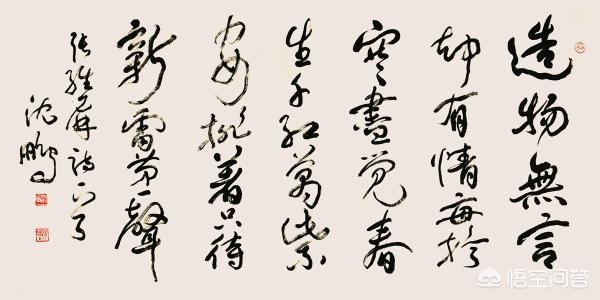 造物無言
却有情每於
寒盡覺春
生千紅萬紫
安排着只待
新雷第一聲
張維屏詩一首
沈鵬
悟空问答